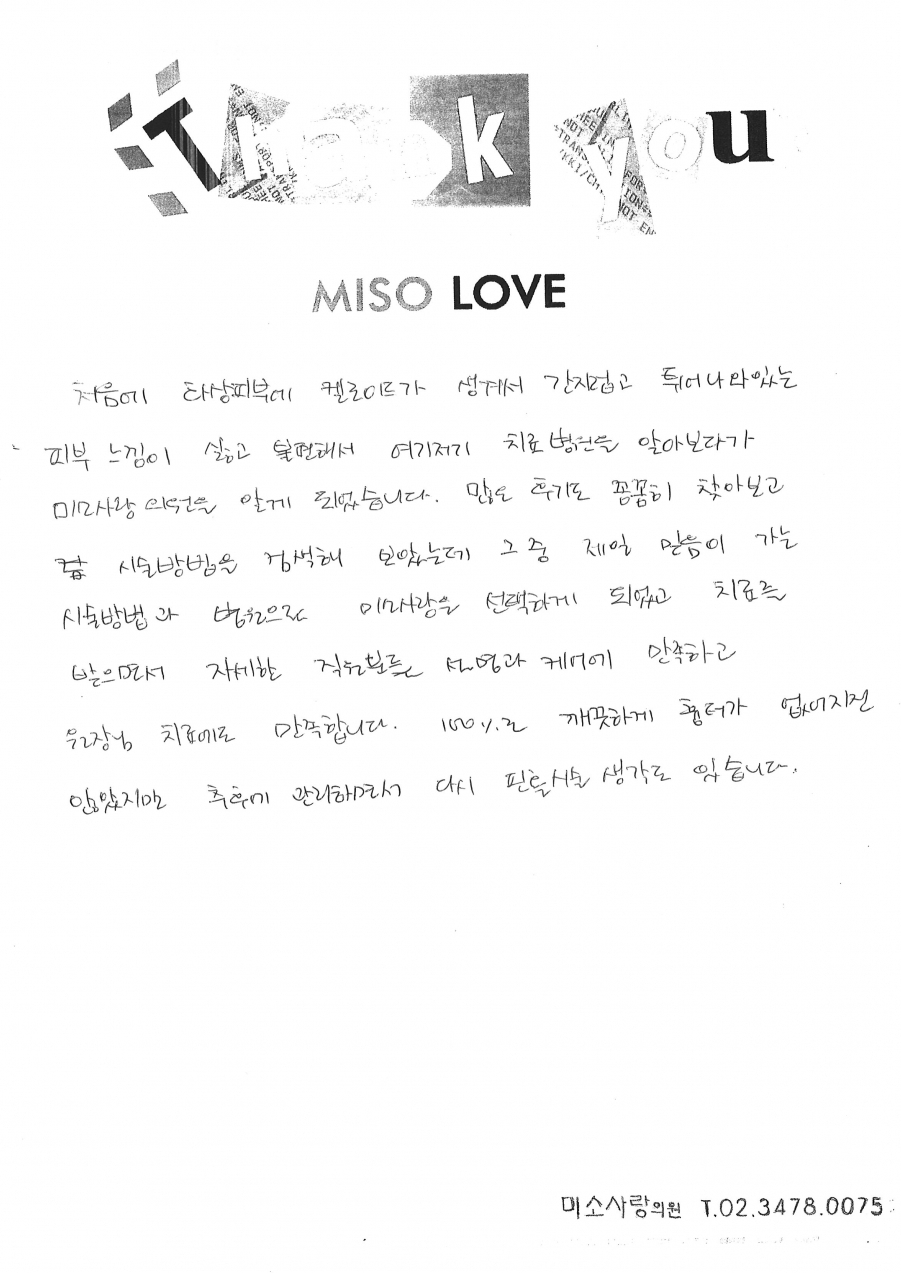 Thank you
MISO LOVE
처음에 타상피부에 켈로이드가 생겨서 간지럽고 튀어나와있는
피부 느낌이 싫고 불편해서 여기저기 치료병원을 알아보다가
미소사랑 의원을 알게 되었습니다. 많은 후기도 꼼꼼히 찾아보고
시술방법을 검색해 보았는데 그 중 제일 믿음이 가는
시술방법과 병원으로 미소사랑을 선택하게 되었고 치료를
받으면서 자세한 직원분들 설명과 케어에 만족하고
원장님 치료에도 만족합니다. 100%로 깨끗하게 흉터가 없어지진
않았지만 추후에 관리하면서 다시 핀홀시술 생각도 있습니다.
미소사랑의원 T.02.3478.0075